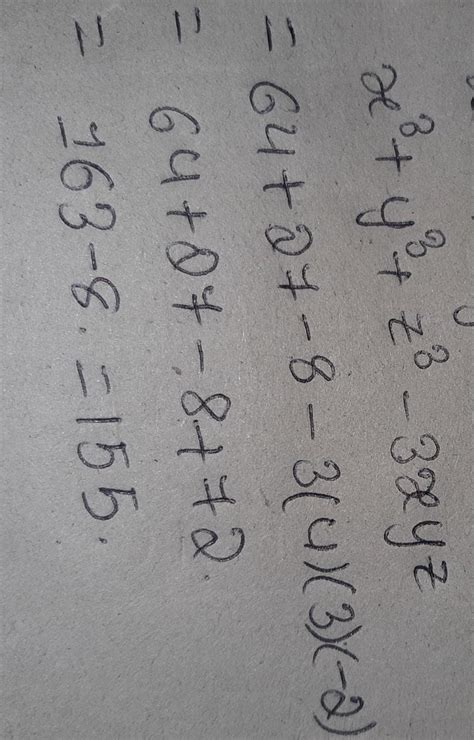 x³ + y³ + z³ - 3xyz
= 64 + 27 - 8 - 3(4)(3)(-2)
= 64 + 27 - 8 + 72
= 163 - 8 = 155.